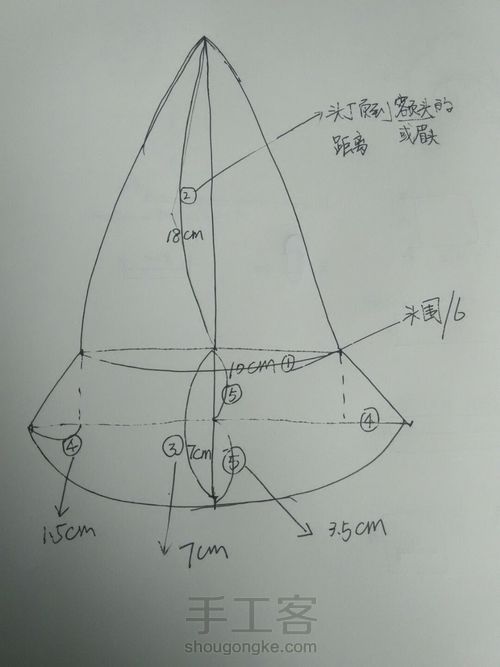 头顶到额头的
距离 或眉头
②
18cm
头围/6
10cm ①
⑤
④
④
③
7cm
⑤
1.5cm
7cm
3.5cm
手工客
shougongke.com